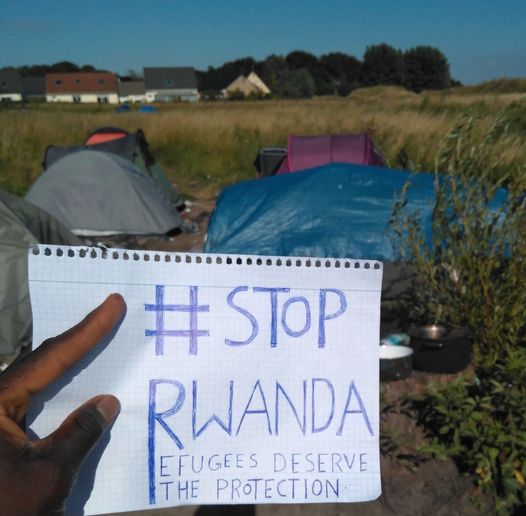 # STOP
RWANDA
REFUGEES DESERVE
THE PROTECTION.